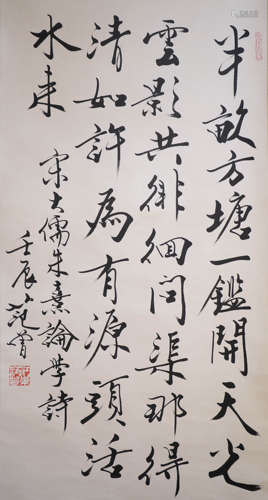 半畝方塘一鑑開天光
雲影共徘徊問渠那得
清如許為有源頭活
水來
宋大儒朱熹論學詩
壬辰范曾